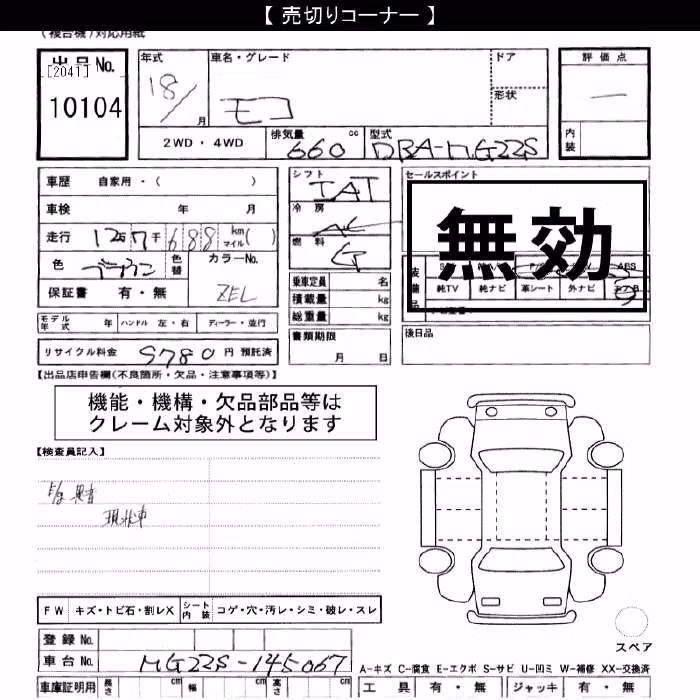 【 売切りコーナー 】
(複合機)対応用紙
出品No.
[2041]
10104
年式
18/
月
車名・グレード
モコ
ドア
形状
評価点
一
内装
2WD ・ 4WD
排気量 cc
660
型式
DBA-MG22S
車歴 自家用・( )
車検 年 月
走行 127千688 km マイル ( )
色 ブラウン 色替 カラーNo.
保証書 有・無 ZEL
シフト
IAT
冷房
AC
燃料
G
乗車定員 名
積載量 kg
総重量 kg
セールスポイント
無効
装備品
ABS
純TV 純ナビ 革シート 外ナビ エアB
モデル年式 年 ハンドル 左・右 ディーラー・並行
書類期限
月 日
後日品
リサイクル料金 9780 円 預託済
【出品店申告欄(不良箇所・欠品・注意事項等)】
機能・機構・欠品部品等は
クレーム対象外となります
【検査員記入】
E/G 異音
現状車
FW キズ・トビ石・割レX シート内装 コゲ・穴・汚レ・シミ・破レ・スレ
スペア
登録 No.
車台 No. MG22S-145067
A-キズ C-腐食 E-エクボ S-サビ U-凹ミ W-補修 XX-交換済
車庫証明用 長さ cm 幅 cm 高さ cm
工具 有・無 ジャッキ 有・無